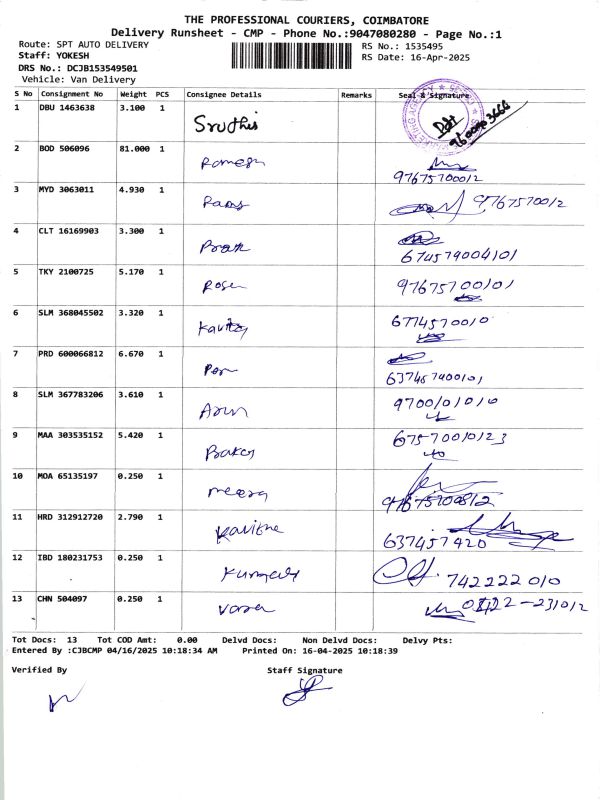 THE PROFESSIONAL COURIERS, COIMBATORE
Delivery Runsheet - CMP - Phone No.:9047080280 - Page No.:1
Route: SPT AUTO DELIVERY RS No.: 1535495
Staff: YOKESH RS Date: 16-Apr-2025
DRS No.: DCJB153549501
Vehicle: Van Delivery
S No Consignment No Weight PCS Consignee Details Remarks Seal & Signature
1 DBU 1463638 3.100 1 Sruthi
2 BOD 506096 81.000 1 Ramesh 97675700012
3 MYD 3063011 4.930 1 9767570012
4 CLT 16169903 3.300 1 674579004101
5 TKY 2100725 5.170 1 Rose 97675700101
6 SLM 368045502 3.320 1 Kavitha 6774570010
7 PRD 600066812 6.670 1 637457400101
8 SLM 367783206 3.610 1 Arun 9700101010
9 MAA 303535152 5.420 1 67570010123
10 MOA 65135197 0.250 1 meera
11 HRD 312912720 2.790 1 637457420
12 IBD 180231753 0.250 1 742222010
13 CHN 504097 0.250 1
Tot Docs: 13 Tot COD Amt: 0.00 Delvd Docs: Non Delvd Docs: Delvy Pts:
Entered By :CJBCMP 04/16/2025 10:18:34 AM Printed On: 16-04-2025 10:18:39
Verified By Staff Signature